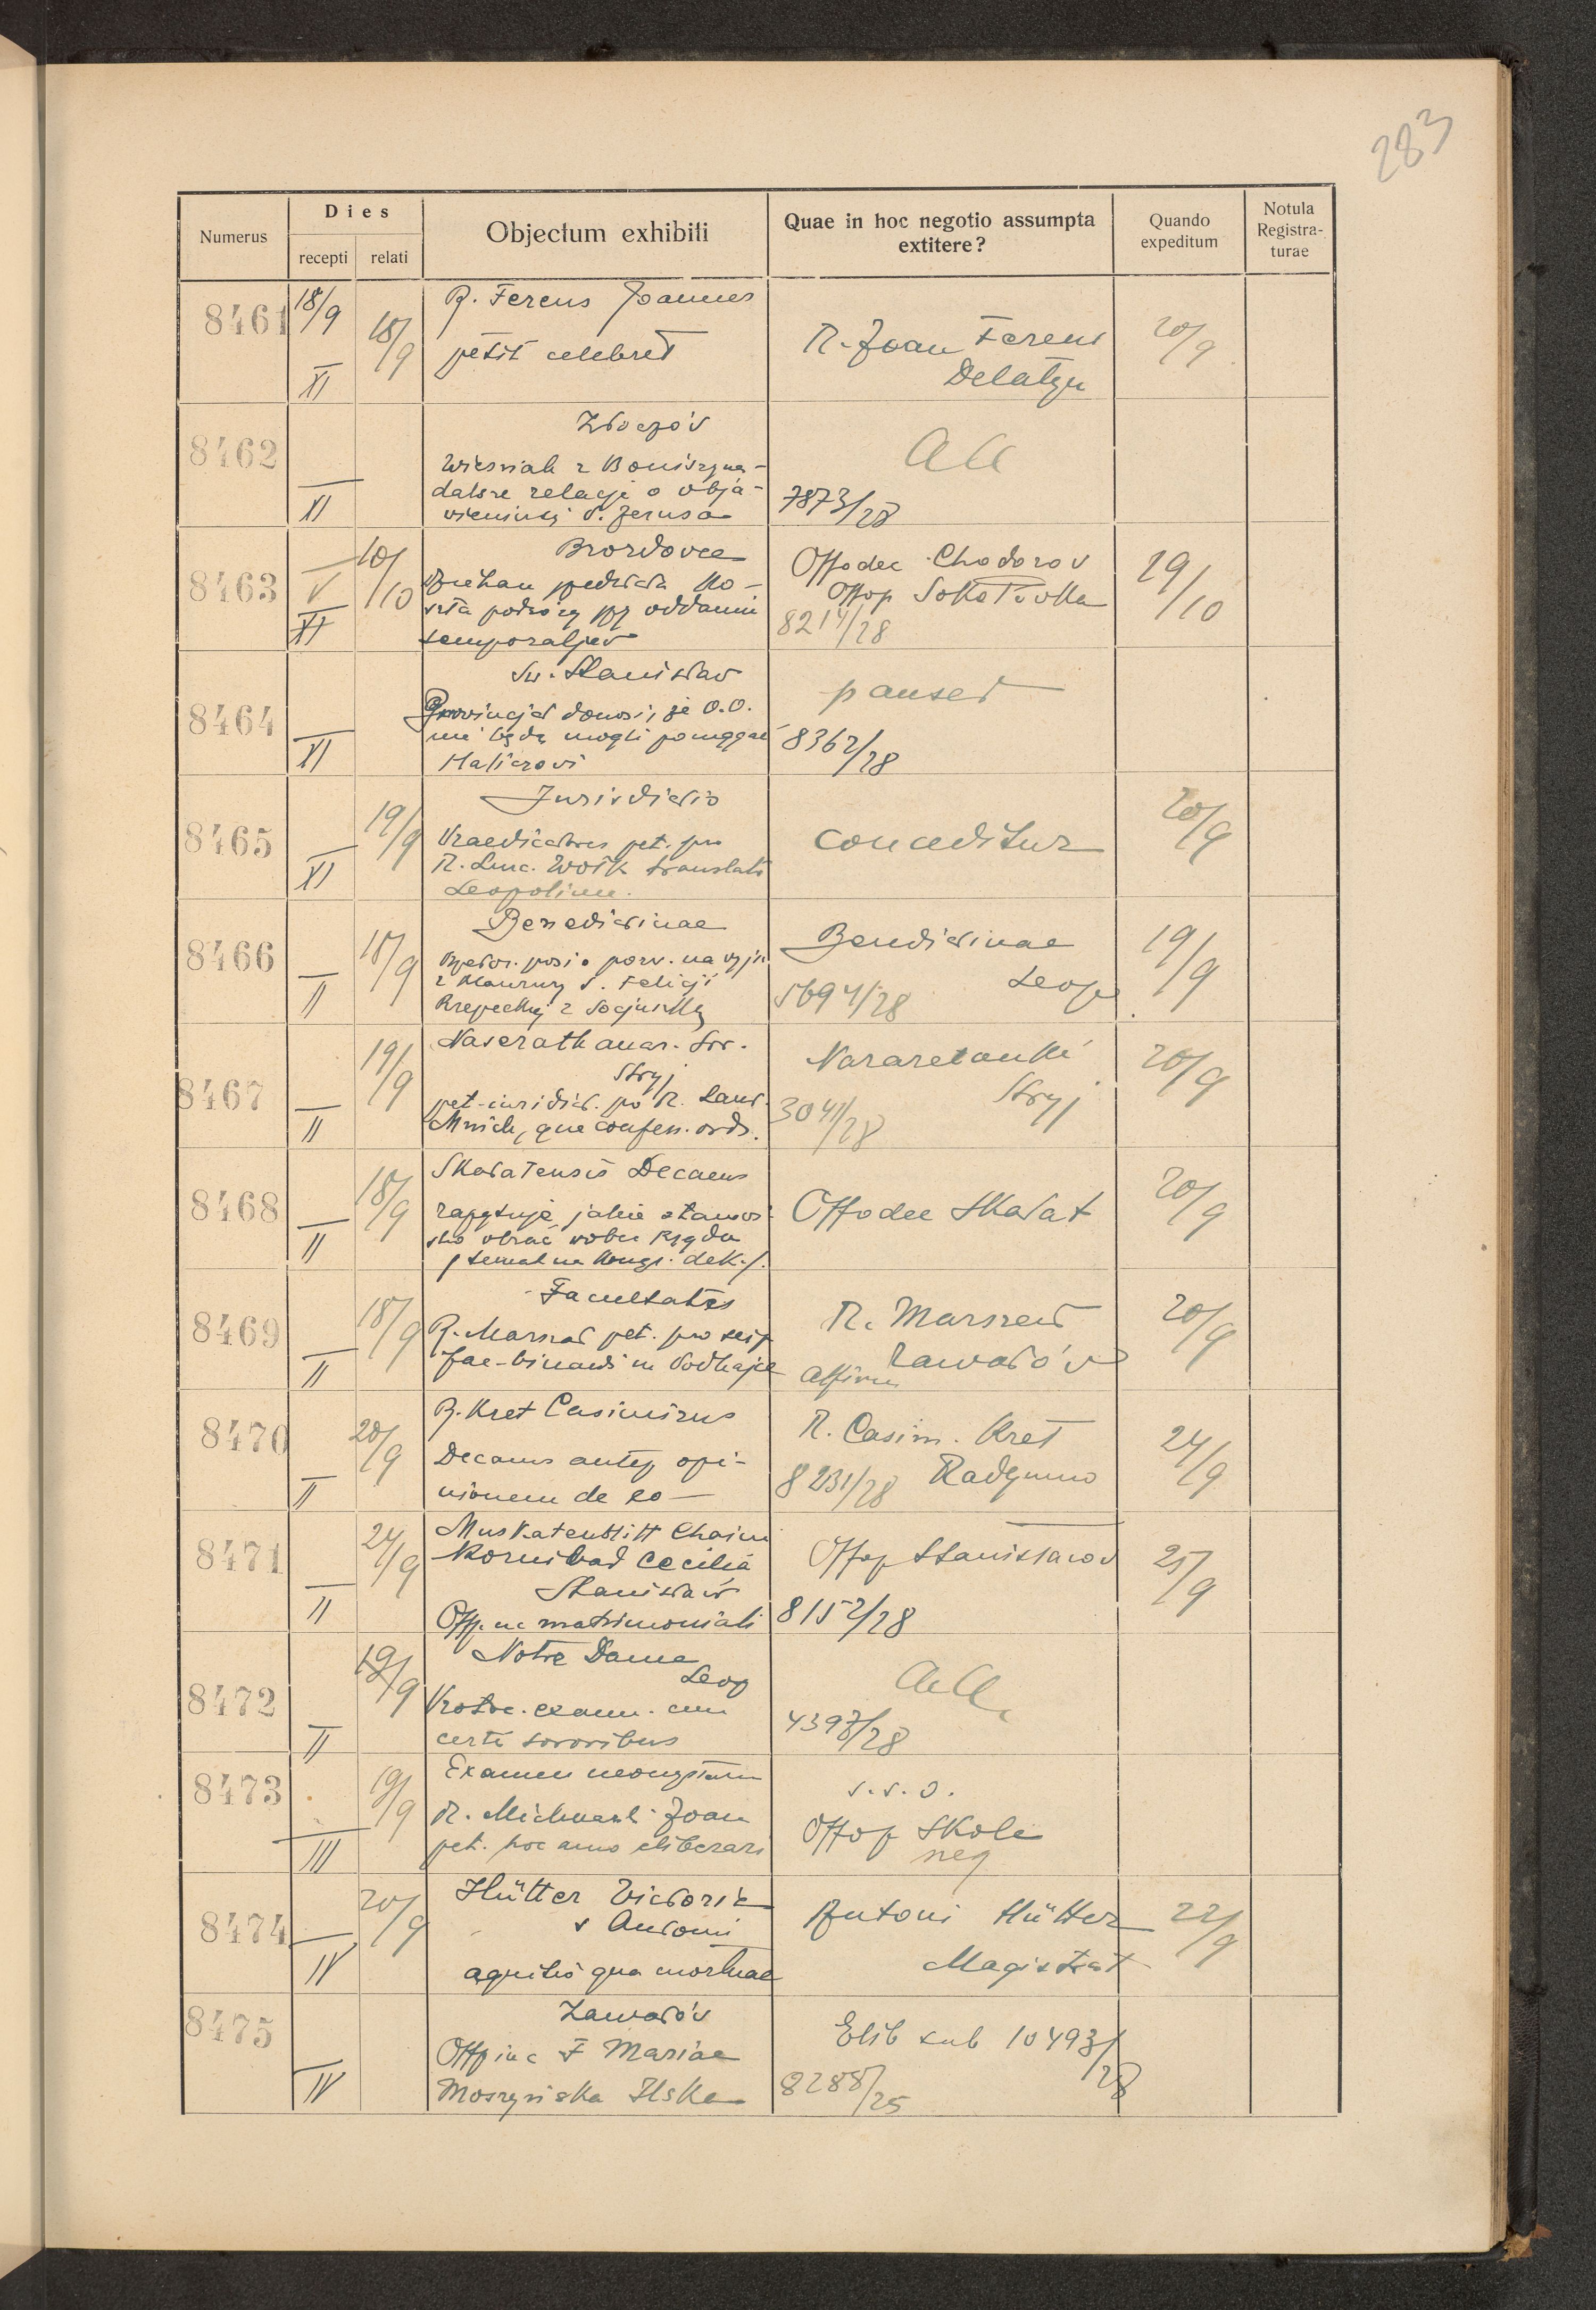 283
Numerus
Dies
recepti relati
Objectum exhibiti
Quae in hoc negotio assumpta
extitere?
Quando
expeditum
Notula
Registra-
turae
8461 18/9 18/9 R. Ferens Joannes
petit celebret
XI
R. Joan Ferens
Delatyn
20/9
8462
Złoczów
Wieśniak z Boniszyna -
dalsze relacje o obja-
P. Jezusa
XI
All
7873/28
8463 10/10
V
XI
Brozdowce
podróży przy oddaniu
temporaljów
Offo dec Chodorov
Offop Sokołówka
8214/28
29/10
8464
XI
Św. Stanisław
Prowincjał donosi, że O.O.
nie będą mogli pomagać
Haliczowi
pauset
8362/28
8465 19/9
XI
Jurisdictio
Praedicatores pet. pro
R. Luc. Wołk translato
Leopolim.
conceditur
20/9
8466 18/9
II
Benedictinae
prosi o pozw. na
z klauzury S. Felicji
Benedictinae
Leop
5694/28
19/9
8467 19/9
II
Nazarethanar. Sor.
Stryj
pet. iuridict. po R. Laur.
Mnich, qua confess. ord.
Nazaretanki
Stryj
3041/28
20/9
8468 18/9
II
Skałatensis Decanus
zapytuje, jakie stanowi-
sko obrać wobec Rządu
/ temat na kongr. dek./.
Offo dec Skałat
20/9
8469 18/9
II
Facultates
R. Marszał pet. pro
fac. binandi in Podhajce
R. Marszał
Zawałów
affirm
20/9
8470 20/9
II
R. Kret Casimirus
Decanus opi-
nionem de eo —
R. Casim. Kret
8231/28 Radymno
24/9
8471 24/9
II
Muskatenblitt Chaim
Kornblad Cecilia
Stanisław
Offp. in matrimoniali
Offop Stanisławów
8152/28
25/9
8472 19/9
II
Notre Dame
Leop
Protoc. exam. cum
certis sororibus
All
4397/28
8473 19/9
III
Examen neomystarum
R. Joan
pet. hoc anno eliberari
s.s.o.
Offop Skole
neg
8474 20/9
IV
Hütter Victoria
v Antoni
agnitio qua mortuae
Antoni Hütter
Magistrat
22/9
8475
IV
Zawałów
Mariae
Moszyńska Ilska
Elib sub 10493/28
8288/25